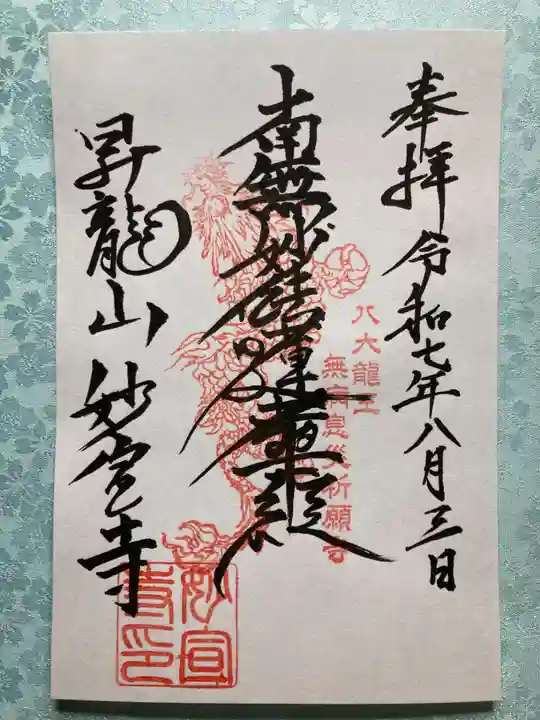 奉拝 令和七年八月三日
八大龍王
無病息災祈願
南無妙法蓮華経
昇龍山 妙宣寺
妙宣
寺印